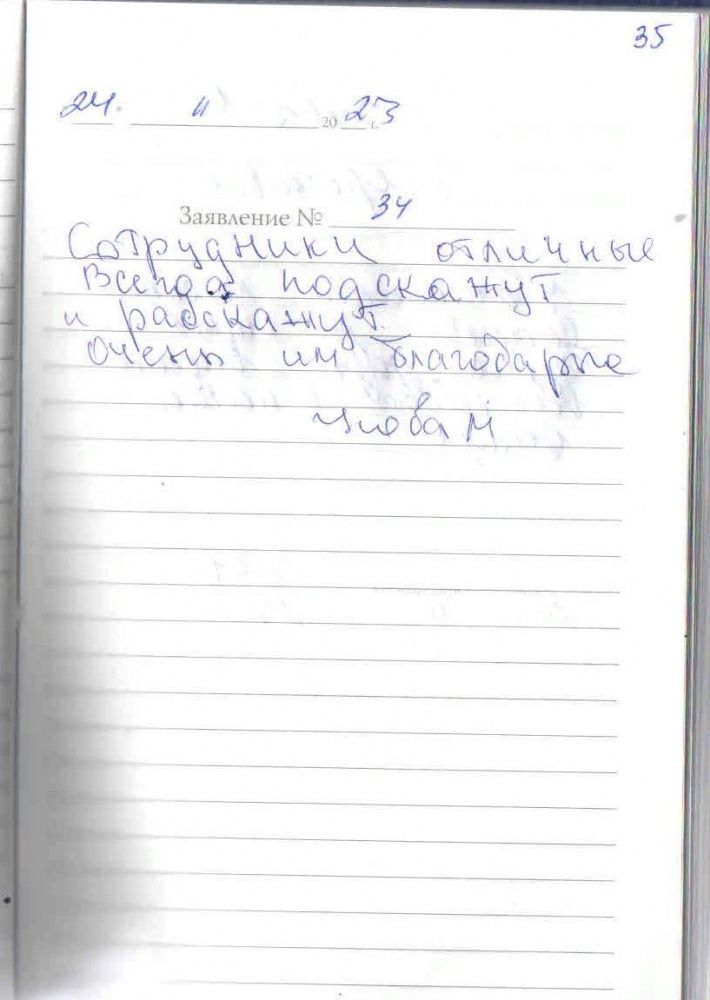 35
24. 11 2023 г.
Заявление № 34
Сотрудники отличные
Всегда подскажут
и расскажут.
очень им благодарны